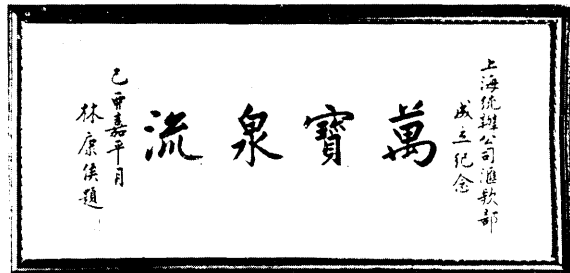 上海統辦公司滙款部
成立紀念
萬寶泉流
己酉嘉平月
林康侯題